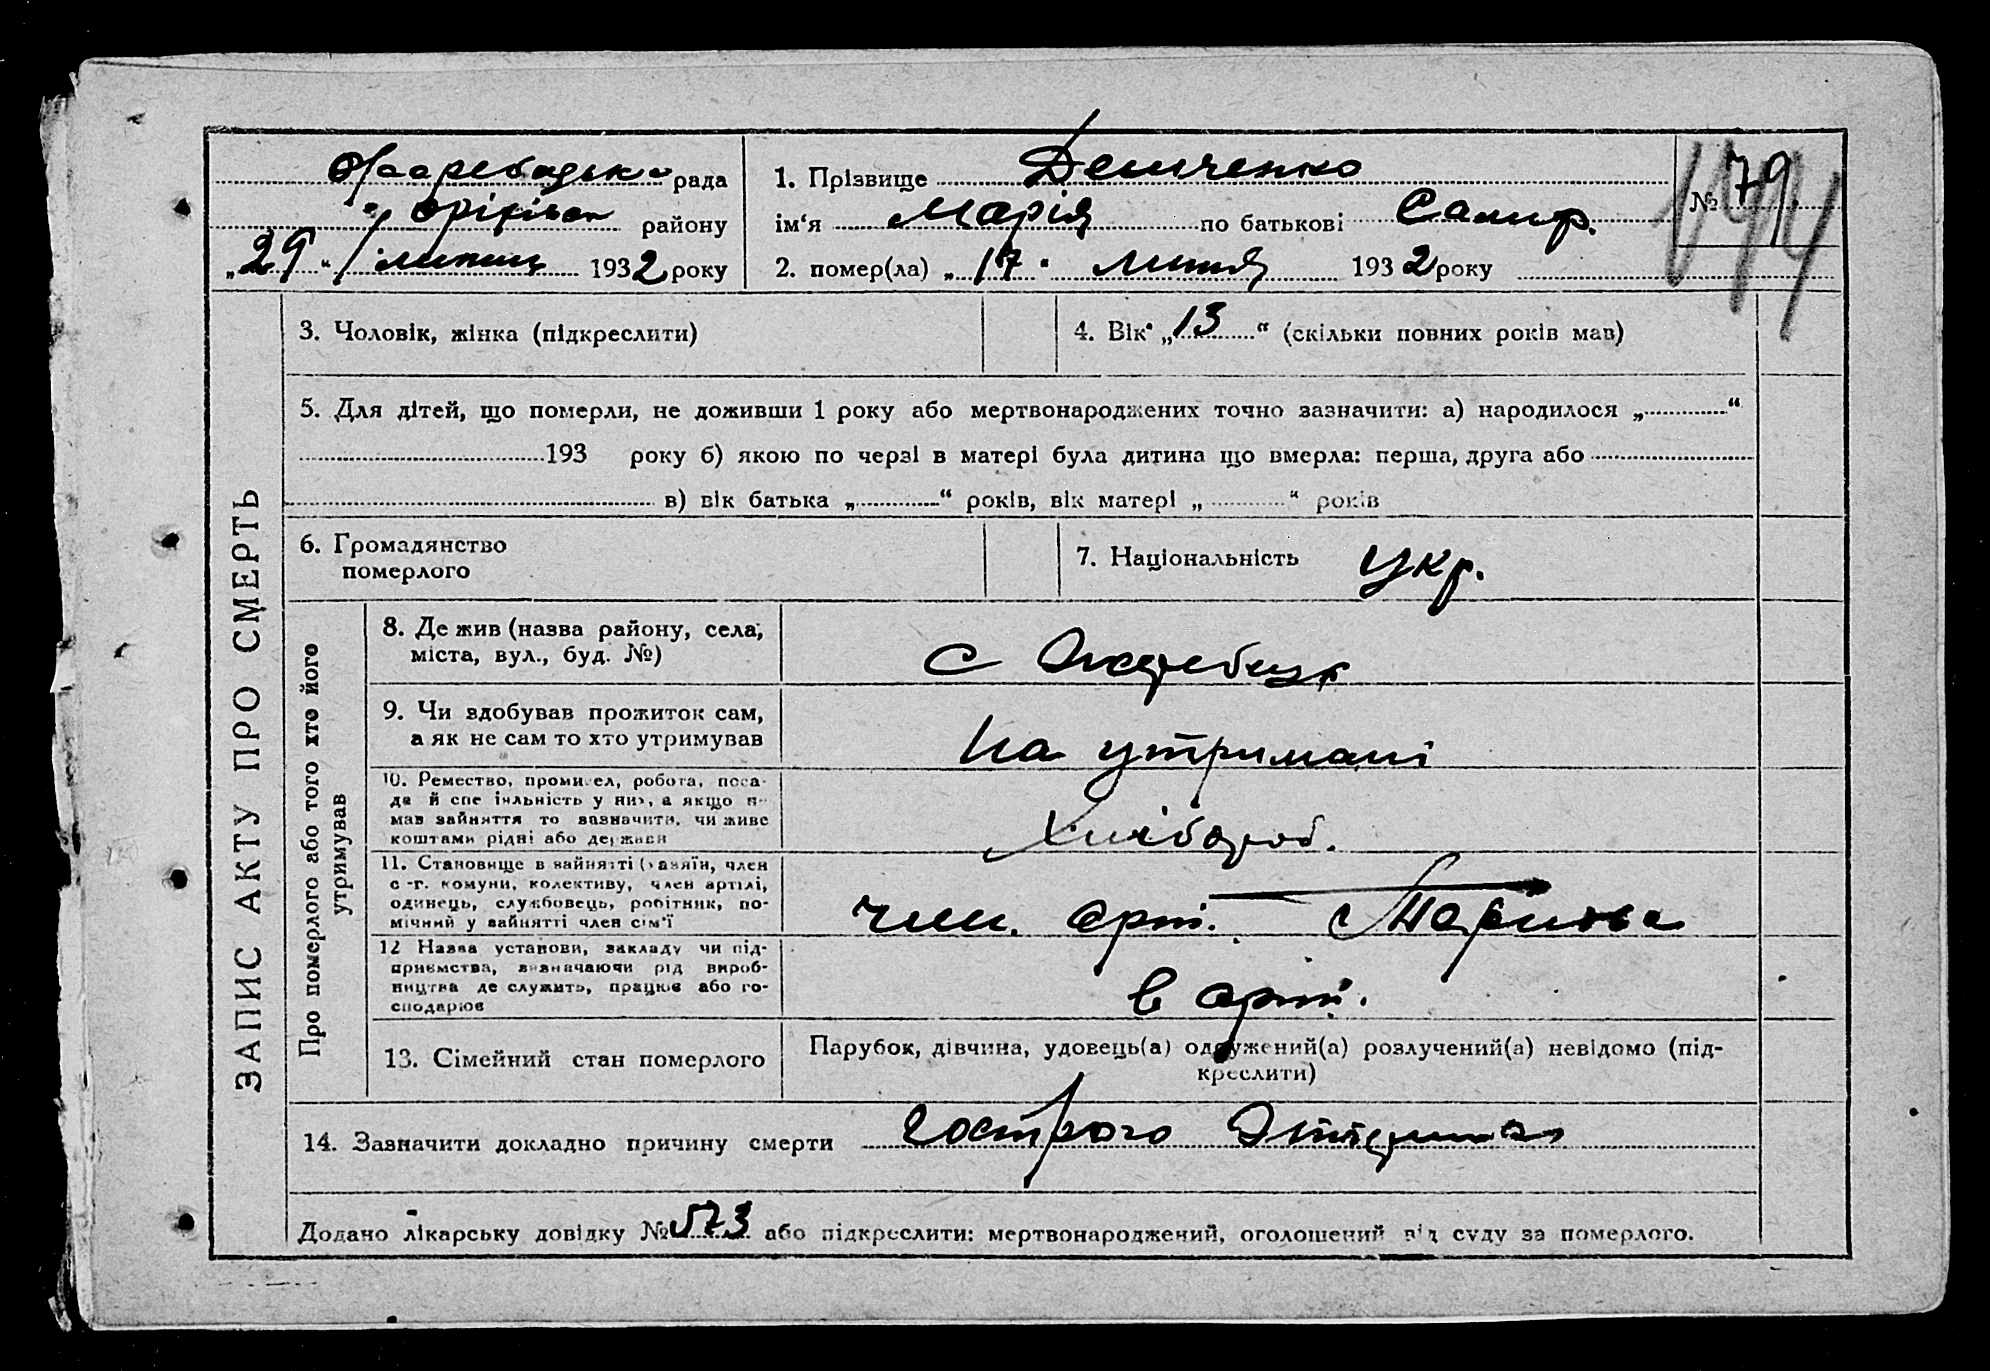 рада
району
„29“ липня 1932 року
1. Прізвище Демченко
ім‘я Марія по батькові
2. помер(ла) „17“ липня 1932 року
№ 79.
144
ЗАПИС АКТУ ПРО СМЕРТЬ
3. Чоловік, жінка (підкреслити)
4. Вік „13“ (скільки повних років мав)
5. Для дітей, що померли, не доживши 1 року або мертвонароджених точно зазначити: а) народилося „ “
193 року б) якою по черзі в матері була дитина що вмерла: перша, друга або
в) вік батька „ “ років, вік матері „ “ років
6. Громадянство
померлого
7. Національність укр.
Про померлого або того хто його
утримував
8. Де жив (назва району, села,
міста, вул., буд. №)
с
9. Чи здобував прожиток сам,
а як не сам то хто утримував
на утримані
10. Ремество, промисел, робота, поса-
да й спеціяльність у них, а якщо не
мав зайняття то зазначити, чи живе
коштами рідні або держави
Хлібороб.
11. Становище в зайнятті (хазяїн, член
с.-г. комуни, колективу, член артілі,
одинець, службовець, робітник, по-
мічний у зайнятті член сім'ї
член. арт.
12 Назва установи, закладу чи під-
приємства, зазначаючи рід вироб-
ництва де служить, працює або го-
сподарює
в арт.
13. Сімейний стан померлого
Парубок, дівчина, удовець(а) одружений(а) розлучений(а) невідомо (під-
креслити)
14. Зазначити докладно причину смерти гострого
Додано лікарську довідку № 573 або підкреслити: мертвонароджений, оголошений від суду за померлого.